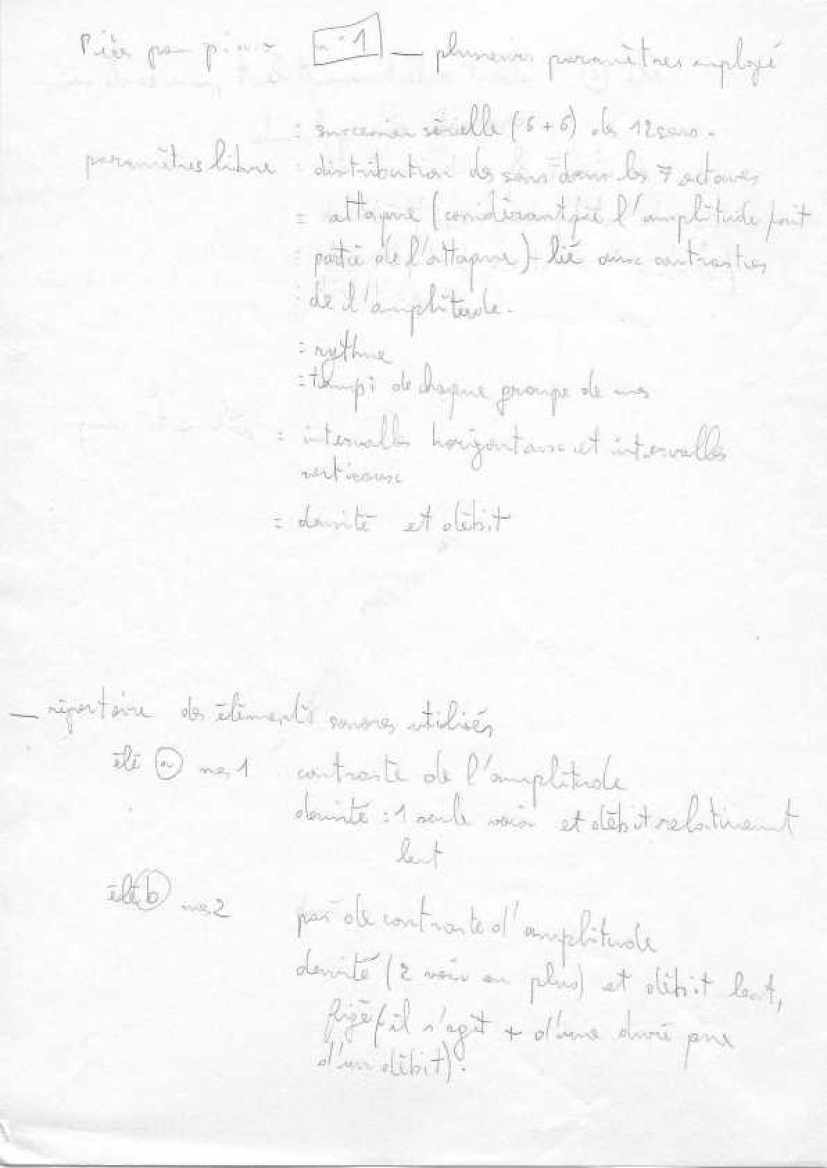 Pièce pour piano n°1 — plusieurs paramètres employé
= succession sérielle (6+6) des 12 sons.
paramètres libre = distribution des sons dans les 7 octaves
= attaque (considérant que l'amplitude fait
partie de l'attaque) - lié aux contrastes
de l'amplitude.
= rythme
= tempi de chaque groupe de mes
= intervalles horizontaux et intervalles
verticaux
= densité et débit
— répertoire des éléments sonores utilisés
élé a mes 1 contraste de l'amplitude
densité : 1 seule voix et débit relativement
lent
élé b mes 2 pas de contraste d'amplitude
densité (2 voix en plus) et débit lent,
figé (il s'agit + d'une durée que
d'un débit).